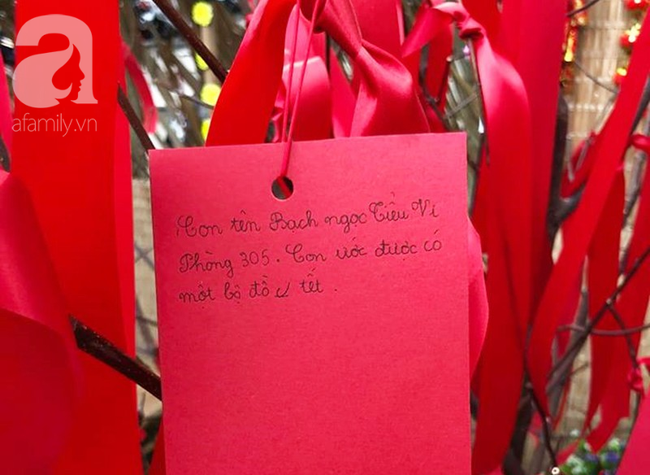 a
afamily.vn
Con tên Bạch ngọc Tiểu Vi
Phòng 305. Con ước được có
một bộ đồ tết.